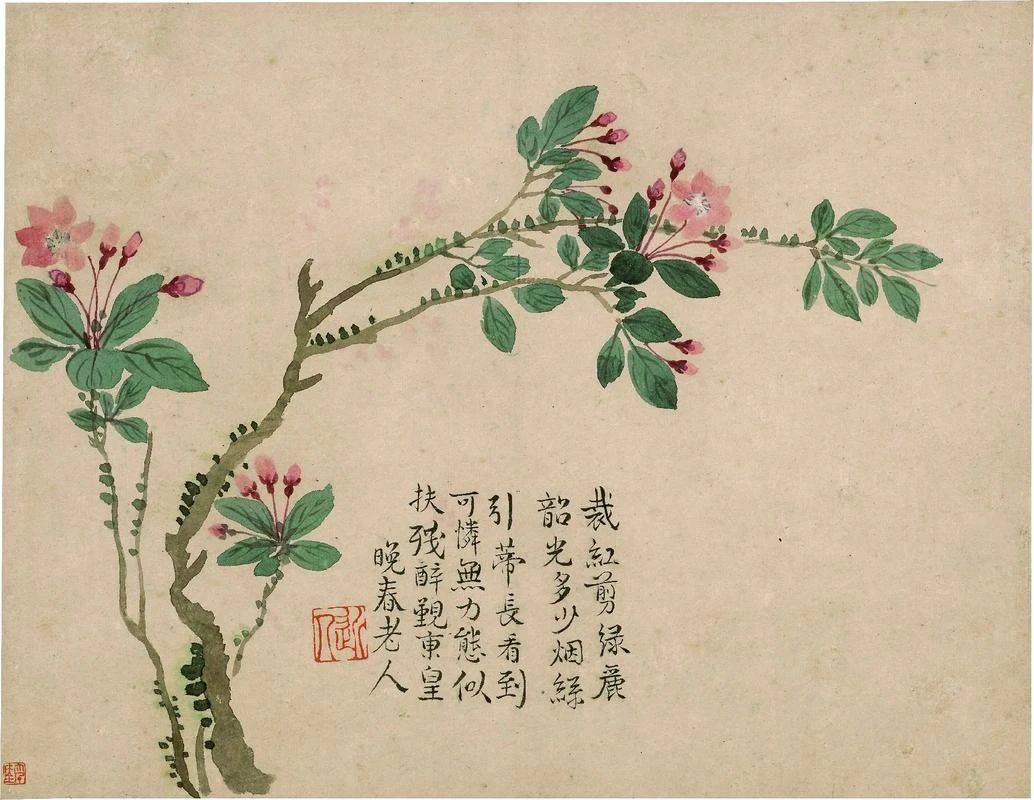 裁紅剪绿麗
韶光多少烟絲
引蒂長看到
可憐無力態似
扶残醉覲東皇
晚春老人